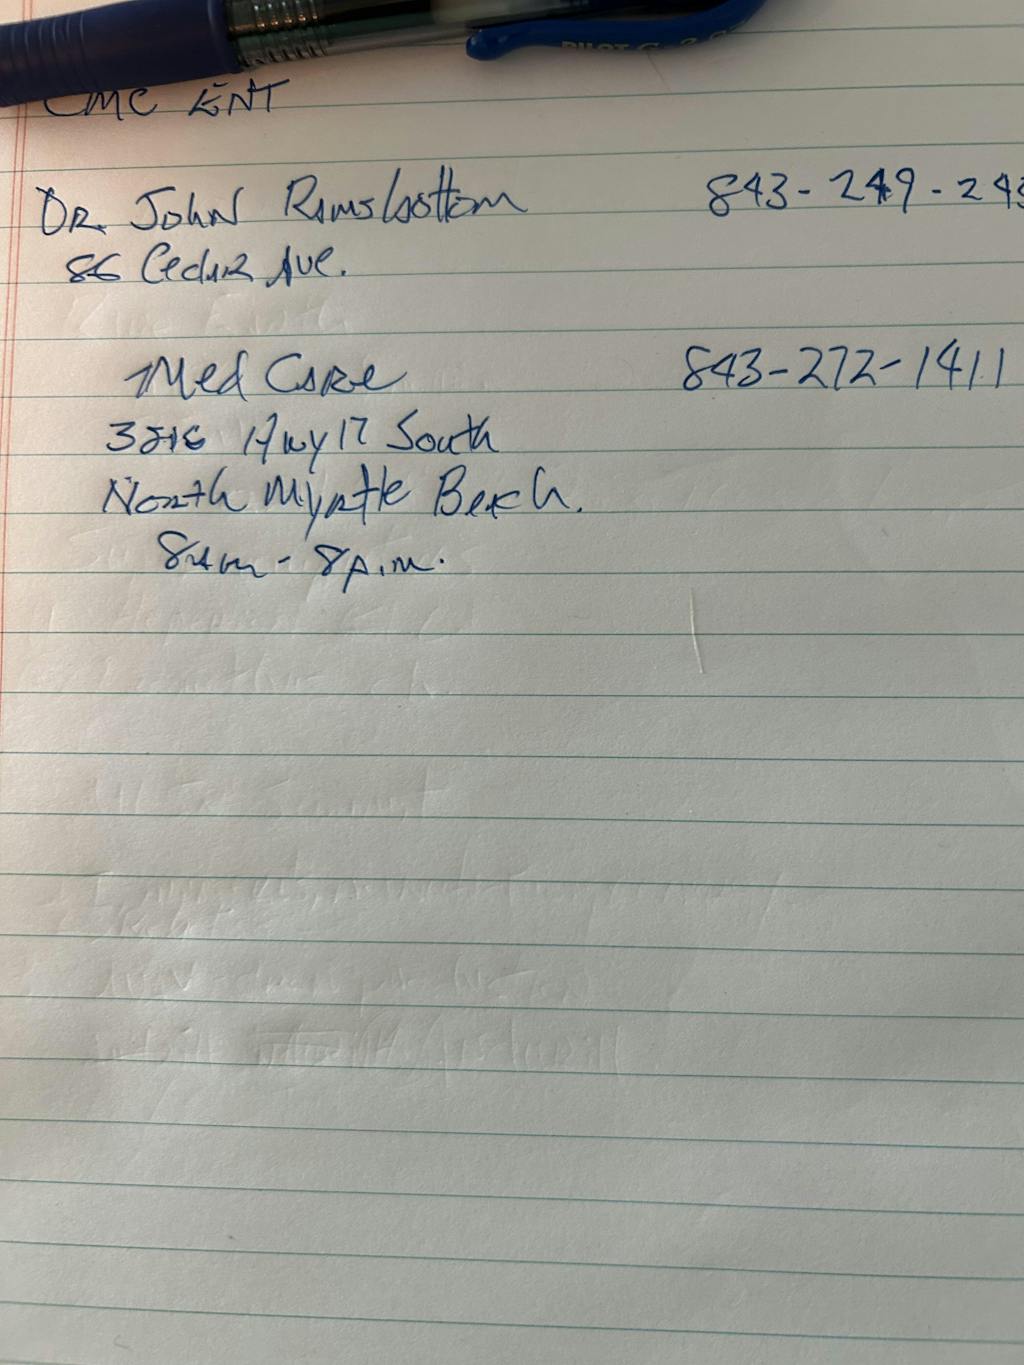 PILOT G-2
CMC ENT
DR. JOHN Ramsbottom 843-249-243
86 Cedar Ave.
Med Care 843-272-1411
3816 Hwy 17 South
North Myrtle Beach.
8am - 8p.m.